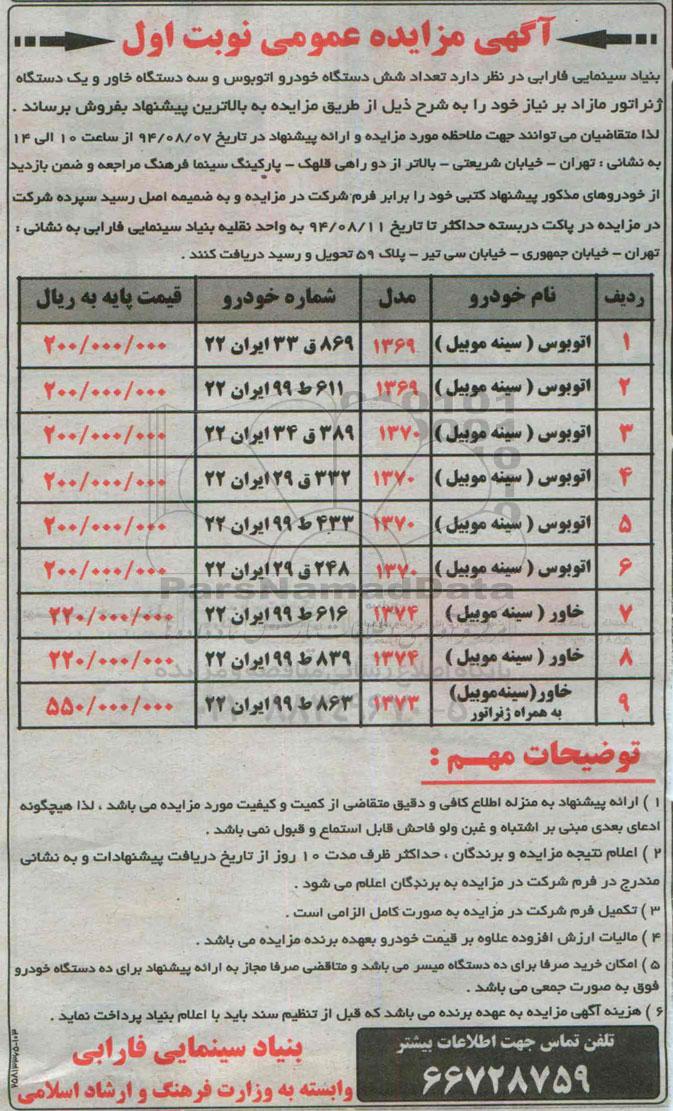 آگهی مزایده عمومی نوبت اول
بنیاد سینمایی فارابی در نظر دارد تعداد شش دستگاه خودرو اتوبوس و سه دستگاه خاور و یک دستگاه
ژنراتور مازاد بر نیاز خود را به شرح ذیل از طریق مزایده به بالاترین پیشنهاد بفروش برساند .
لذا متقاضیان می توانند جهت ملاحظه مورد مزایده و ارائه پیشنهاد در تاریخ ۹۴/۰۸/۰۷ از ساعت ۱۰ الی ۱۴
به نشانی : تهران - خیابان شریعتی - بالاتر از دو راهی قلهک - پارکینگ سینما فرهنگ مراجعه و ضمن بازدید
از خودروهای مذکور پیشنهاد کتبی خود را برابر فرم شرکت در مزایده و به ضمیمه اصل رسید سپرده شرکت
در مزایده در پاکت دربسته حداکثر تا تاریخ ۹۴/۰۸/۱۱ به واحد نقلیه بنیاد سینمایی فارابی به نشانی :
تهران - خیابان جمهوری - خیابان سی تیر - پلاک ۵۹ تحویل و رسید دریافت کنند .
ردیف نام خودرو مدل شماره خودرو قیمت پایه به ریال
۱ اتوبوس ( سینه موبیل ) ۱۳۶۹ ۸۶۹ ق ۳۳ ایران ۲۲ ۲۰۰/۰۰۰/۰۰۰
۲ اتوبوس ( سینه موبیل ) ۱۳۶۹ ۶۱۱ ط ۹۹ ایران ۲۲ ۲۰۰/۰۰۰/۰۰۰
۳ اتوبوس ( سینه موبیل ) ۱۳۷۰ ۳۸۹ ق ۳۴ ایران ۲۲ ۲۰۰/۰۰۰/۰۰۰
۴ اتوبوس ( سینه موبیل ) ۱۳۷۰ ۳۳۲ ق ۲۹ ایران ۲۲ ۲۰۰/۰۰۰/۰۰۰
۵ اتوبوس ( سینه موبیل ) ۱۳۷۰ ۴۳۳ ط ۹۹ ایران ۲۲ ۲۰۰/۰۰۰/۰۰۰
۶ اتوبوس ( سینه موبیل ) ۱۳۷۰ ۲۴۸ ق ۲۹ ایران ۲۲ ۲۰۰/۰۰۰/۰۰۰
ParsNamadData
۷ خاور ( سینه موبیل ) ۱۳۷۴ ۶۱۶ ط ۹۹ ایران ۲۲ ۲۲۰/۰۰۰/۰۰۰
۸ خاور ( سینه موبیل ) ۱۳۷۴ ۸۳۹ ط ۹۹ ایران ۲۲ ۲۲۰/۰۰۰/۰۰۰
پایگاه اطلاع رسانی مناقصه و مزایده
۹ خاور(سینه‌موبیل) ۱۳۷۳ ۸۶۳ ط ۹۹ ایران ۲۲ ۵۵۰/۰۰۰/۰۰۰
به همراه ژنراتور
توضیحات مهم :
۱ ) ارائه پیشنهاد به منزله اطلاع کافی و دقیق متقاضی از کمیت و کیفیت مورد مزایده می باشد ، لذا هیچگونه
ادعای بعدی مبنی بر اشتباه و غبن ولو فاحش قابل استماع و قبول نمی باشد .
۲ ) اعلام نتیجه مزایده و برندگان ، حداکثر ظرف مدت ۱۰ روز از تاریخ دریافت پیشنهادات و به نشانی
مندرج در فرم شرکت در مزایده به برندگان اعلام می شود .
۳ ) تکمیل فرم شرکت در مزایده به صورت کامل الزامی است .
۴ ) مالیات ارزش افزوده علاوه بر قیمت خودرو بعهده برنده مزایده می باشد .
۵ ) امکان خرید صرفا برای ده دستگاه میسر می باشد و متقاضی صرفا مجاز به ارائه پیشنهاد برای ده دستگاه خودرو
فوق به صورت جمعی می باشد .
۶ ) هزینه آگهی مزایده به عهده برنده می باشد که قبل از تنظیم سند باید با اعلام بنیاد پرداخت نماید .
تلفن تماس جهت اطلاعات بیشتر
۶۶۷۲۸۷۵۹
بنیاد سینمایی فارابی
وابسته به وزارت فرهنگ و ارشاد اسلامی